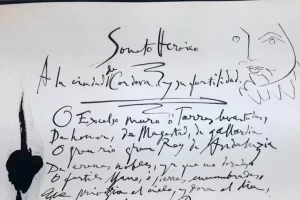 Soneto Heroico
A la ciudad de Cordova, y su fertilidad.
O Excelso muro ô Torres levantadas,
De honor, de Magestad, de gallardia
O gran rio gran Rey de Andaluzia
De arenas nobles, ya que no
O fertil llano, ô sierras encumbradas,
Que privilegia el cielo, y dora el dia,